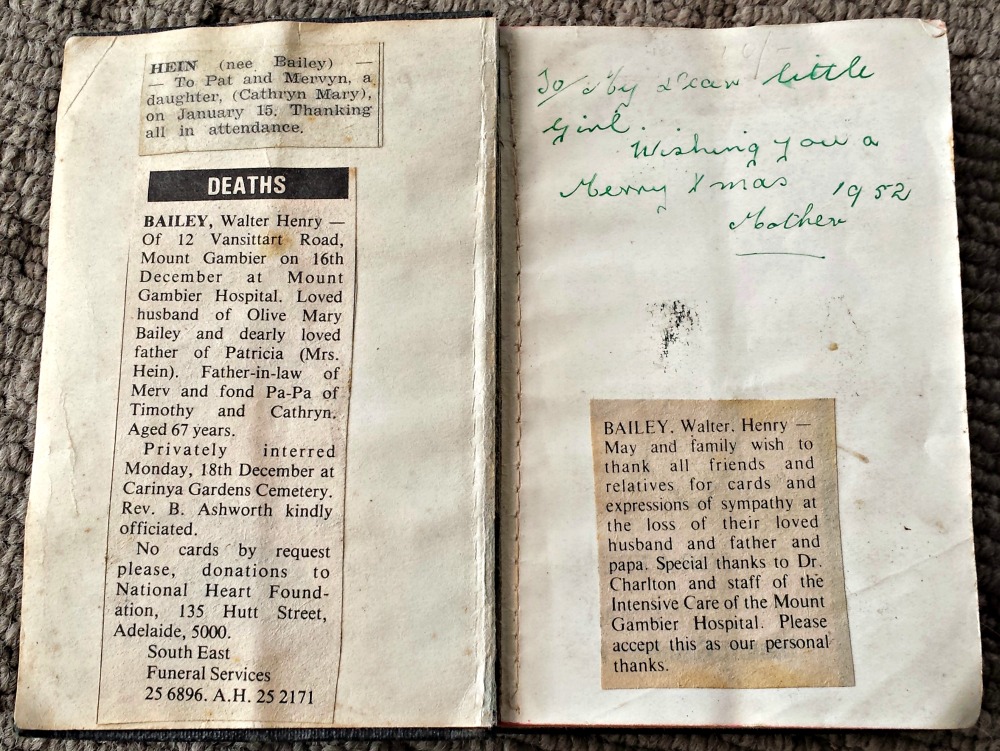 HEIN (nee Bailey) —
— To Pat and Mervyn, a
daughter, (Cathryn Mary),
on January 15. Thanking
all in attendance.
DEATHS
BAILEY, Walter Henry —
Of 12 Vansittart Road,
Mount Gambier on 16th
December at Mount
Gambier Hospital. Loved
husband of Olive Mary
Bailey and dearly loved
father of Patricia (Mrs.
Hein). Father-in-law of
Merv and fond Pa-Pa of
Timothy and Cathryn.
Aged 67 years.
Privately interred
Monday, 18th December at
Carinya Gardens Cemetery.
Rev. B. Ashworth kindly
officiated.
No cards by request
please, donations to
National Heart Found-
ation, 135 Hutt Street,
Adelaide, 5000.
South East
Funeral Services
25 6896. A.H. 25 2171
To My Dear little
Girl.
Wishing you a
Merry Xmas 1952
Mother
BAILEY. Walter. Henry —
May and family wish to
thank all friends and
relatives for cards and
expressions of sympathy at
the loss of their loved
husband and father and
papa. Special thanks to Dr.
Charlton and staff of the
Intensive Care of the Mount
Gambier Hospital. Please
accept this as our personal
thanks.